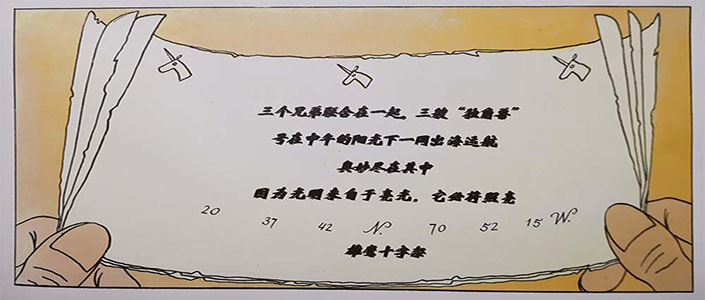 三个兄弟联合在一起。三艘“独角兽”
号在中午的阳光下一同出海远航
奥妙尽在其中
因为光明来自于亮光。它必将照亮
20 37 42 N. 70 52 15 W.
雄鹰十字架